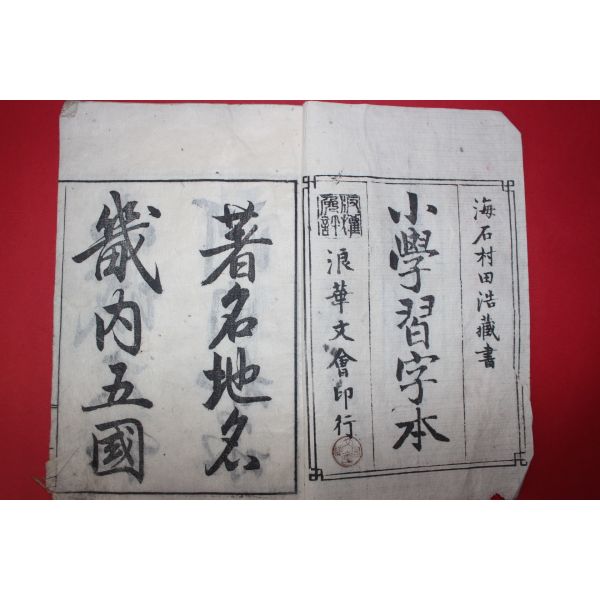 海石村田浩藏書
小學習字本
浪華文會印行
著名地名
畿内五國